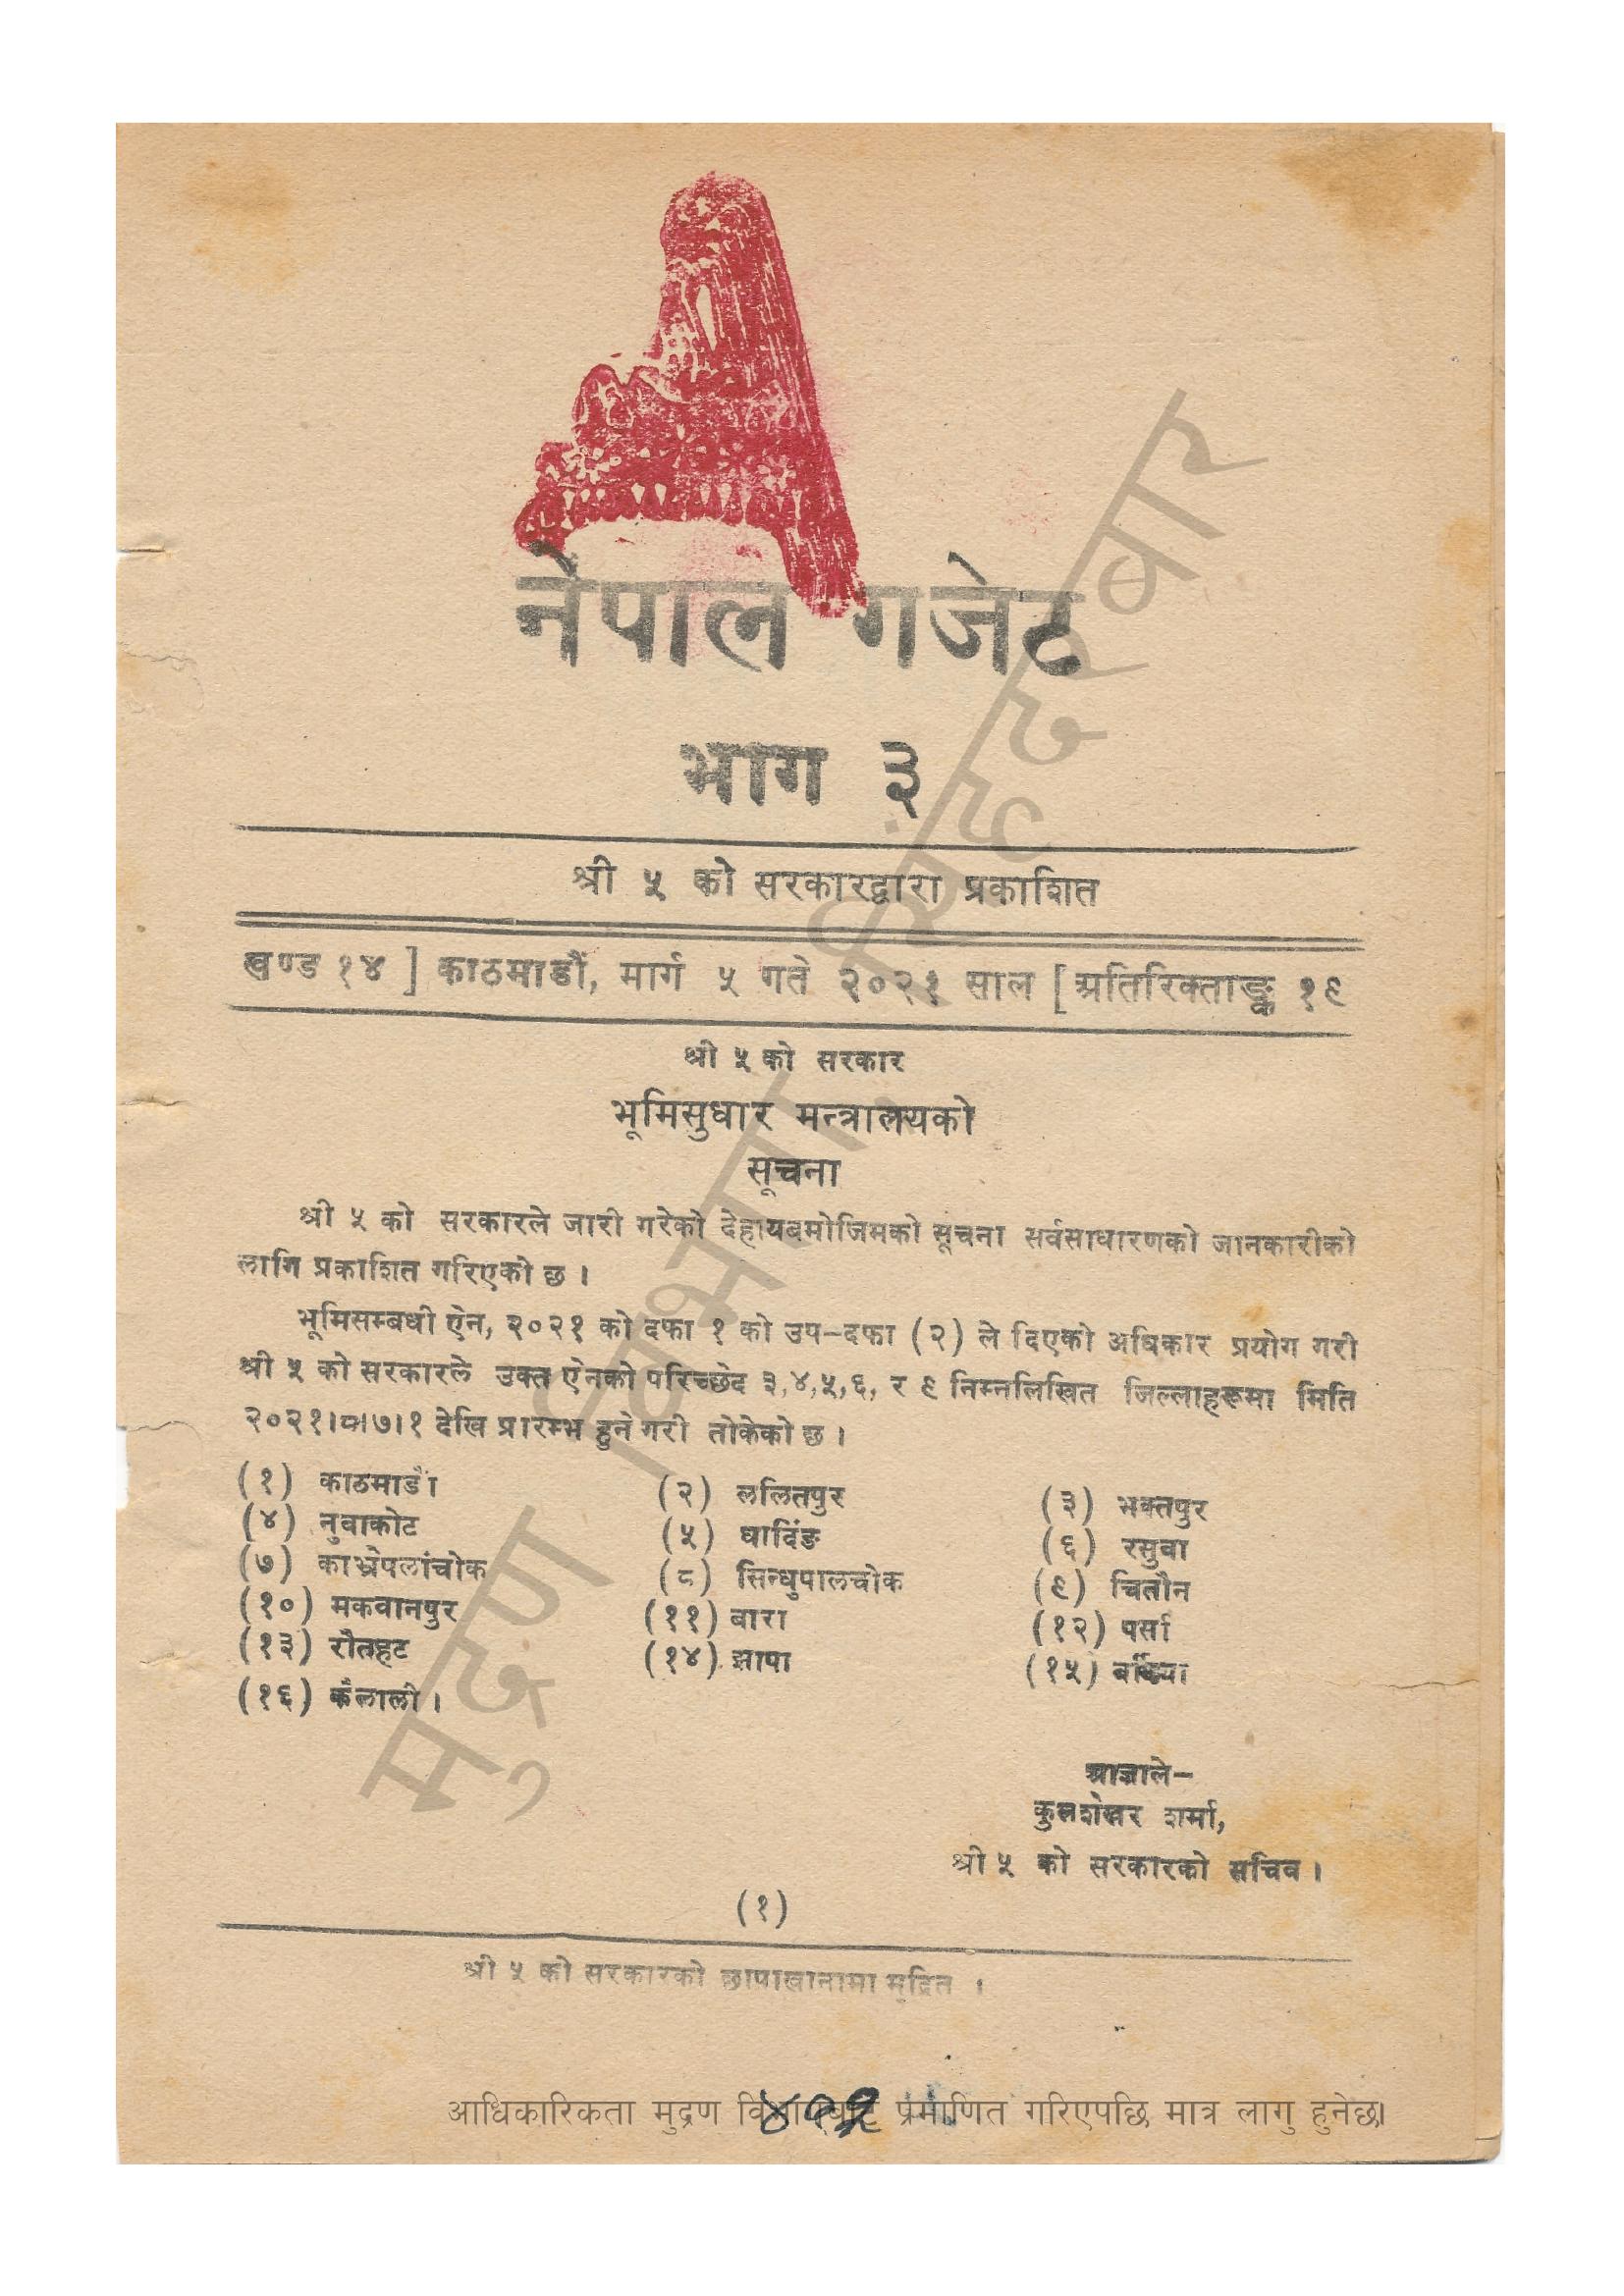 नेपाल गजेट
भाग ३
श्री ५ को सरकारद्वारा प्रकाशित
खण्ड १४ ] काठमाडौं, मार्ग ५ गते २०२१ साल [ अतिरिक्ताङ्क १९
श्री ५ को सरकार
भूमिसुधार मन्त्रालयको
सूचना
श्री ५ को सरकारले जारी गरेको देहायबमोजिमको सूचना सर्वसाधारणको जानकारीको
लागि प्रकाशित गरिएको छ ।
भूमिसम्बधी ऐन, २०२१ को दफा १ को उप-दफा (२) ले दिएको अधिकार प्रयोग गरी
श्री ५ को सरकारले उक्त ऐनको परिच्छेद ३,४,५,६, र ९ निम्नलिखित जिल्लाहरूमा मिति
२०२१।८।७।१ देखि प्रारम्भ हुने गरी तोकेको छ ।
(१) काठमाडौं (२) ललितपुर (३) भक्तपुर
(४) नुवाकोट (५) धादिंङ (६) रसुवा
(७) काभ्रेपलांचोक (८) सिन्धुपालचोक (९) चितौन
(१०) मकवानपुर (११) बारा (१२) पर्सा
(१३) रौतहट (१४) झापा (१५) बर्दिया
(१६) कैलाली ।
आज्ञाले-
कुलशेखर शर्मा,
श्री ५ को सरकारको सचिव ।
(१)
श्री ५ को सरकारको छापाखानामा मुद्रित ।
मुद्रण विभाग, सिंहदरबार
आधिकारिकता मुद्रण विभागबाट प्रमाणित गरिएपछि मात्र लागु हुनेछ।